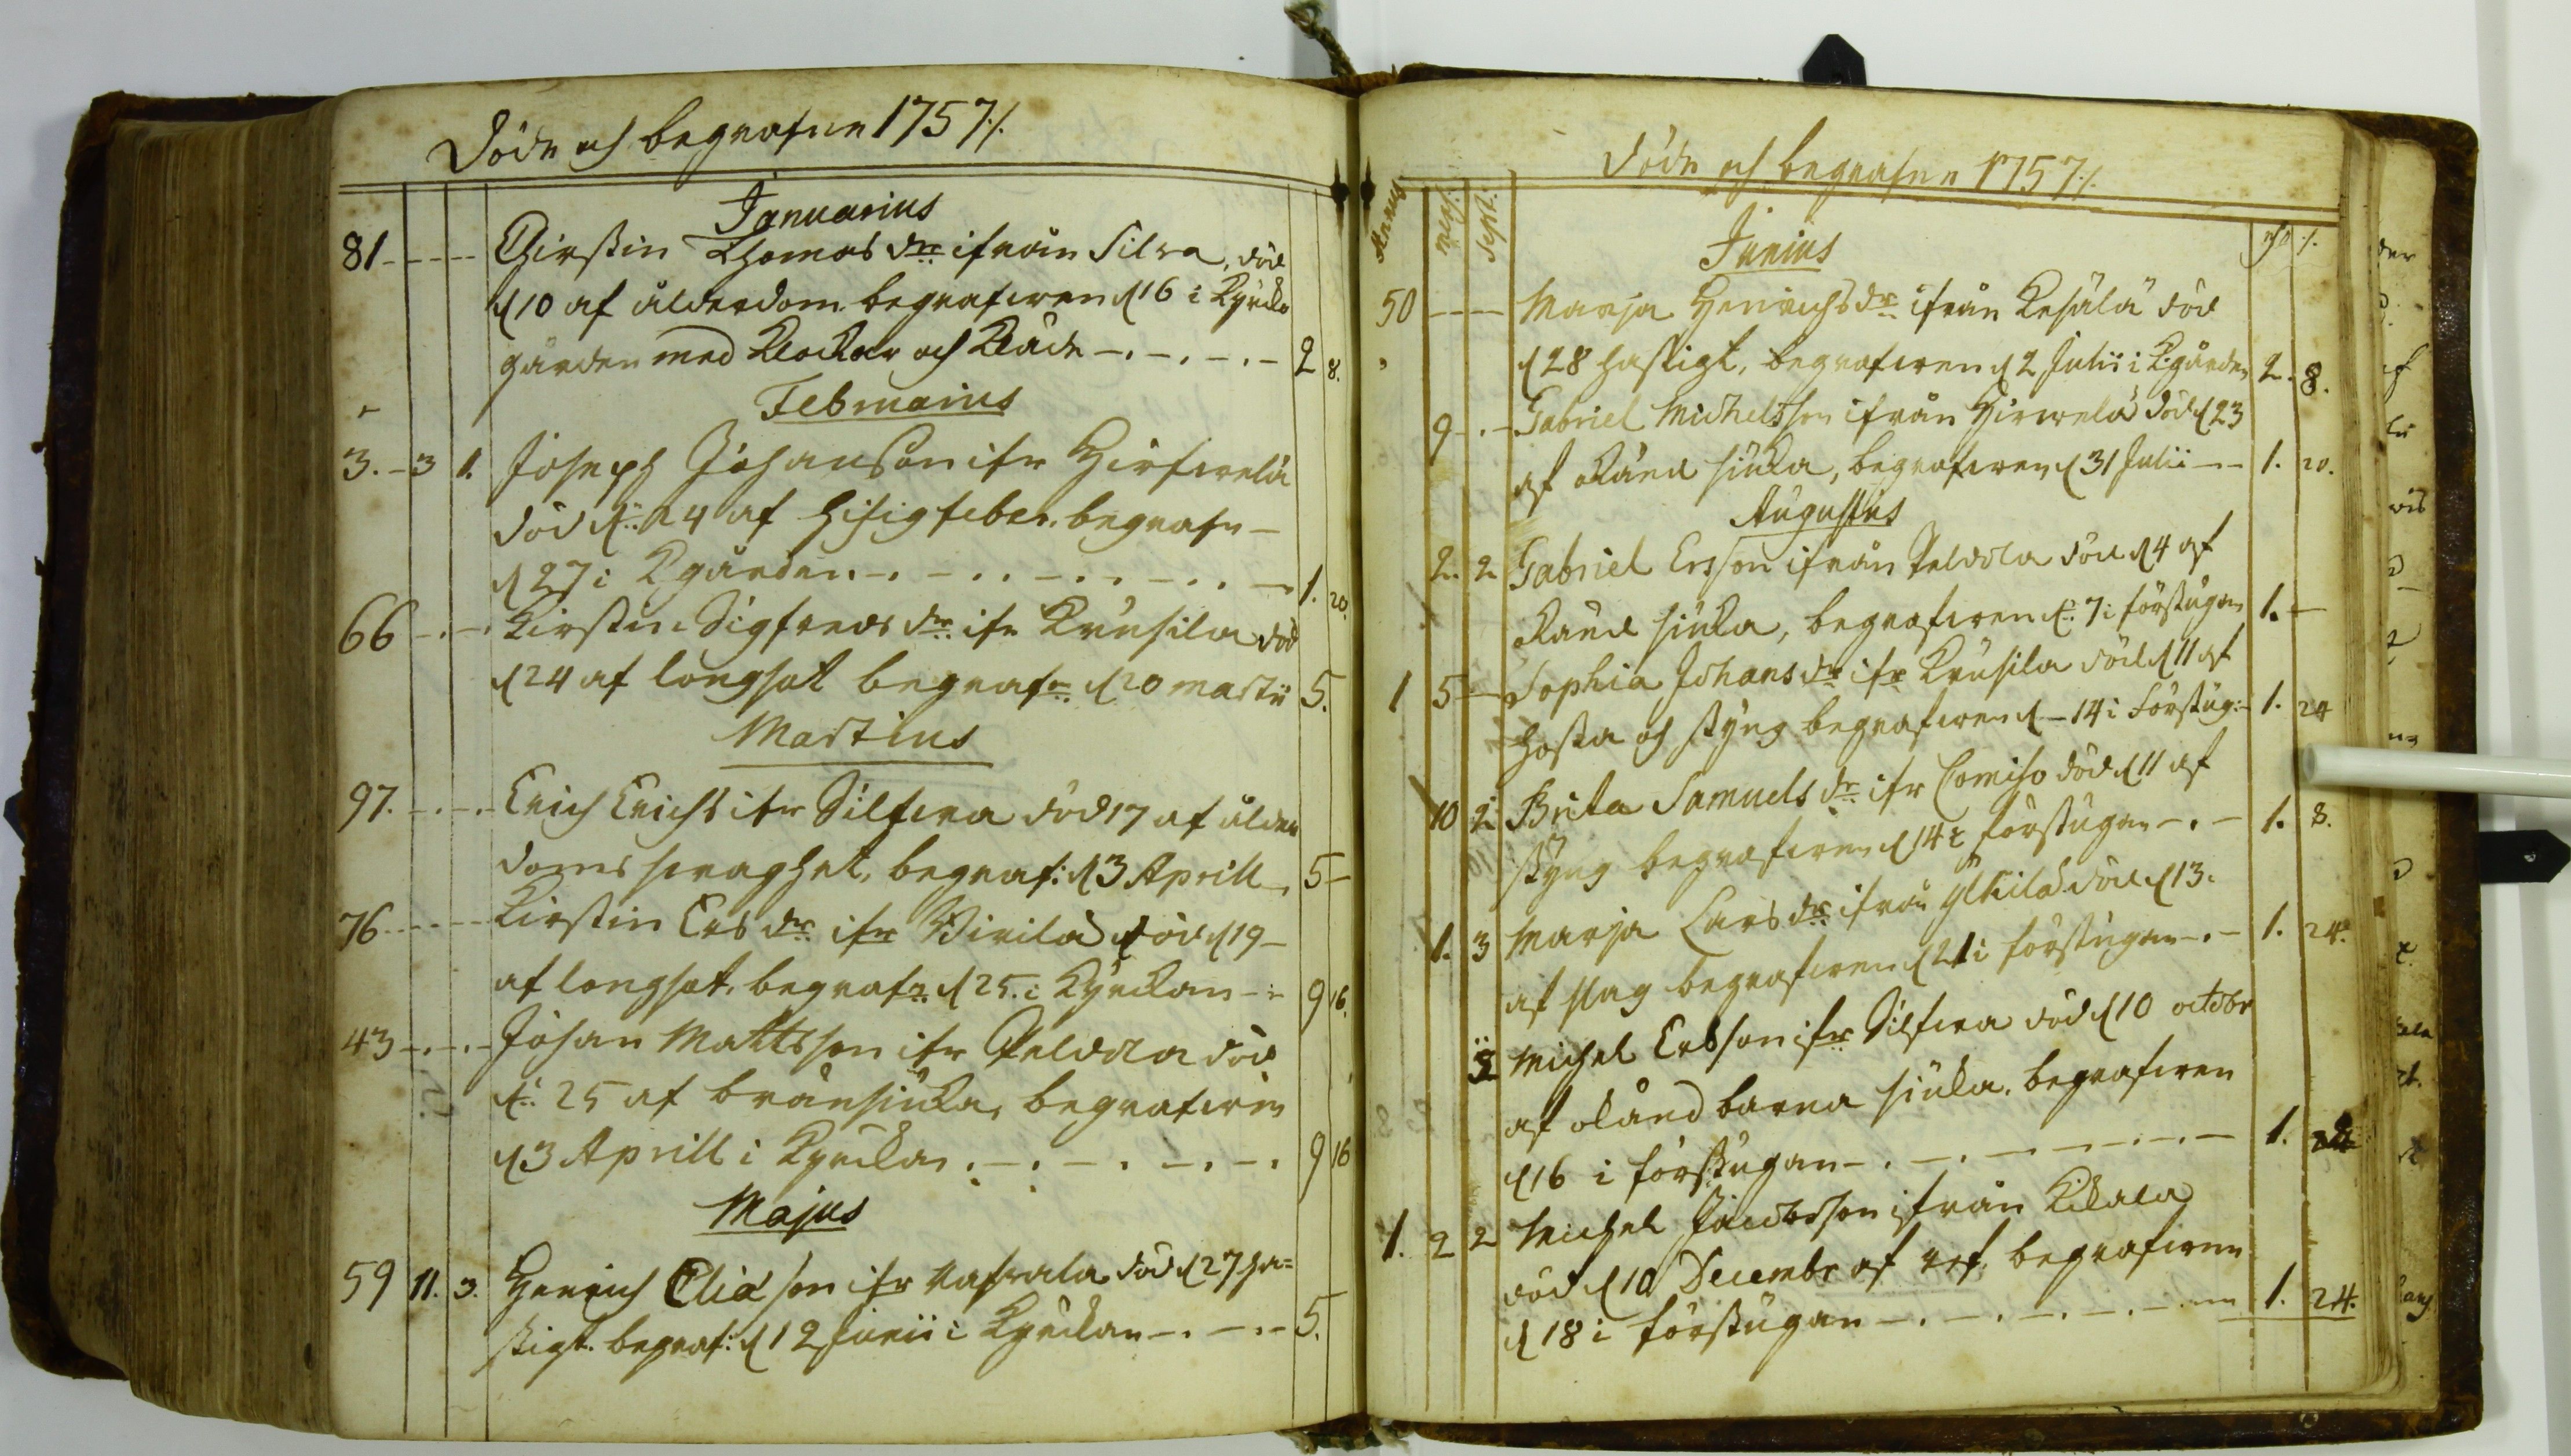 Döde och begrafne 1757 /.
Januarius
81 - - - - Chirstin Thomas dr: ifrån Silva, död
d 10 af ålderdom begrafwen d 16 i Kyrcko
gården med Klockor och Kläde - . - . - . - 2 8.
Februarius
3. - 3 1. Joseph Johansson ifr Hirfwelä
död d: 24 af hisig feber. begrafn -
d 27 i Kgården. - . - . . - . - . - . . - 1. 20.
66 - . - . Kirstin Sigfreds dr: ifr Krusila död
d 24 af longsot begrafn: d 20 martii 5.
Martius
97. - . - . - Erich Erichs ifr Silfwa död 17 af ålder
doms swaghet, begraf: d 3 Aprill - 5 -
76 - - - - Kirstin Ers dr: ifr Wirilä död d 19 -
af longsot, begrafn: d 25. i Kyrckan - : 9 16.
43 - . - . - Johan Mattsson ifr Peldola död
d: 25 af brånsiuka, begrafwen
d 3 Aprill i Kyrckan . - . - . - . - . 9 16
Majus
59 11. 3. Henrich Eliä son ifr död d 27 ha=
stigt. begraf: d 12 Junii i Kyrckan - . - . - 5.
Döde och begrafne 1757 /.
Annus mens: sept:
Junius
50 - - - - Marja Henrichs dr: ifrån Kesälä död
d 28 hastigt, begrafwen d 2 Julii i Kgården 2. 8.
9 - . - Gabriel Michelsson ifrån Hirwelä död d 23
af okänd siuka, begrafwen d 31 Julii - - 1. 20.
Augustus
2. 2 Gabriel Ersson ifrån Peldola död d 4 af
okänd siuka, begrafwen d: 7 i förstugan 1. -
1 5 - Sophia Johans dr: ifr Krusila död d 11 af
hosta och styng begrafwen d - 14 i Förstug: - 1. 24
10 2 Brita Samuels dr: ifr Comiso död d 11 af
styng begrafwen d 14 i förstugan - . - 1. 8.
1. 3 Marja Lars dr: ifrån död d 13.
af slag begrafwen d 21 i förstugan - . - 1. 24.
3 Michel Ersson ifr Silfwa död d 10 octobr
af okänd barna siuka. begrafwen
d 16 i förstugan - . - . - - - . - . - 1.
1. 2 2 Michel Jacobsson ifrån Kikala
död d 10 Decembr af begrafwen
d 18 i förstugan - . - . - . - . - . - 1. 24.